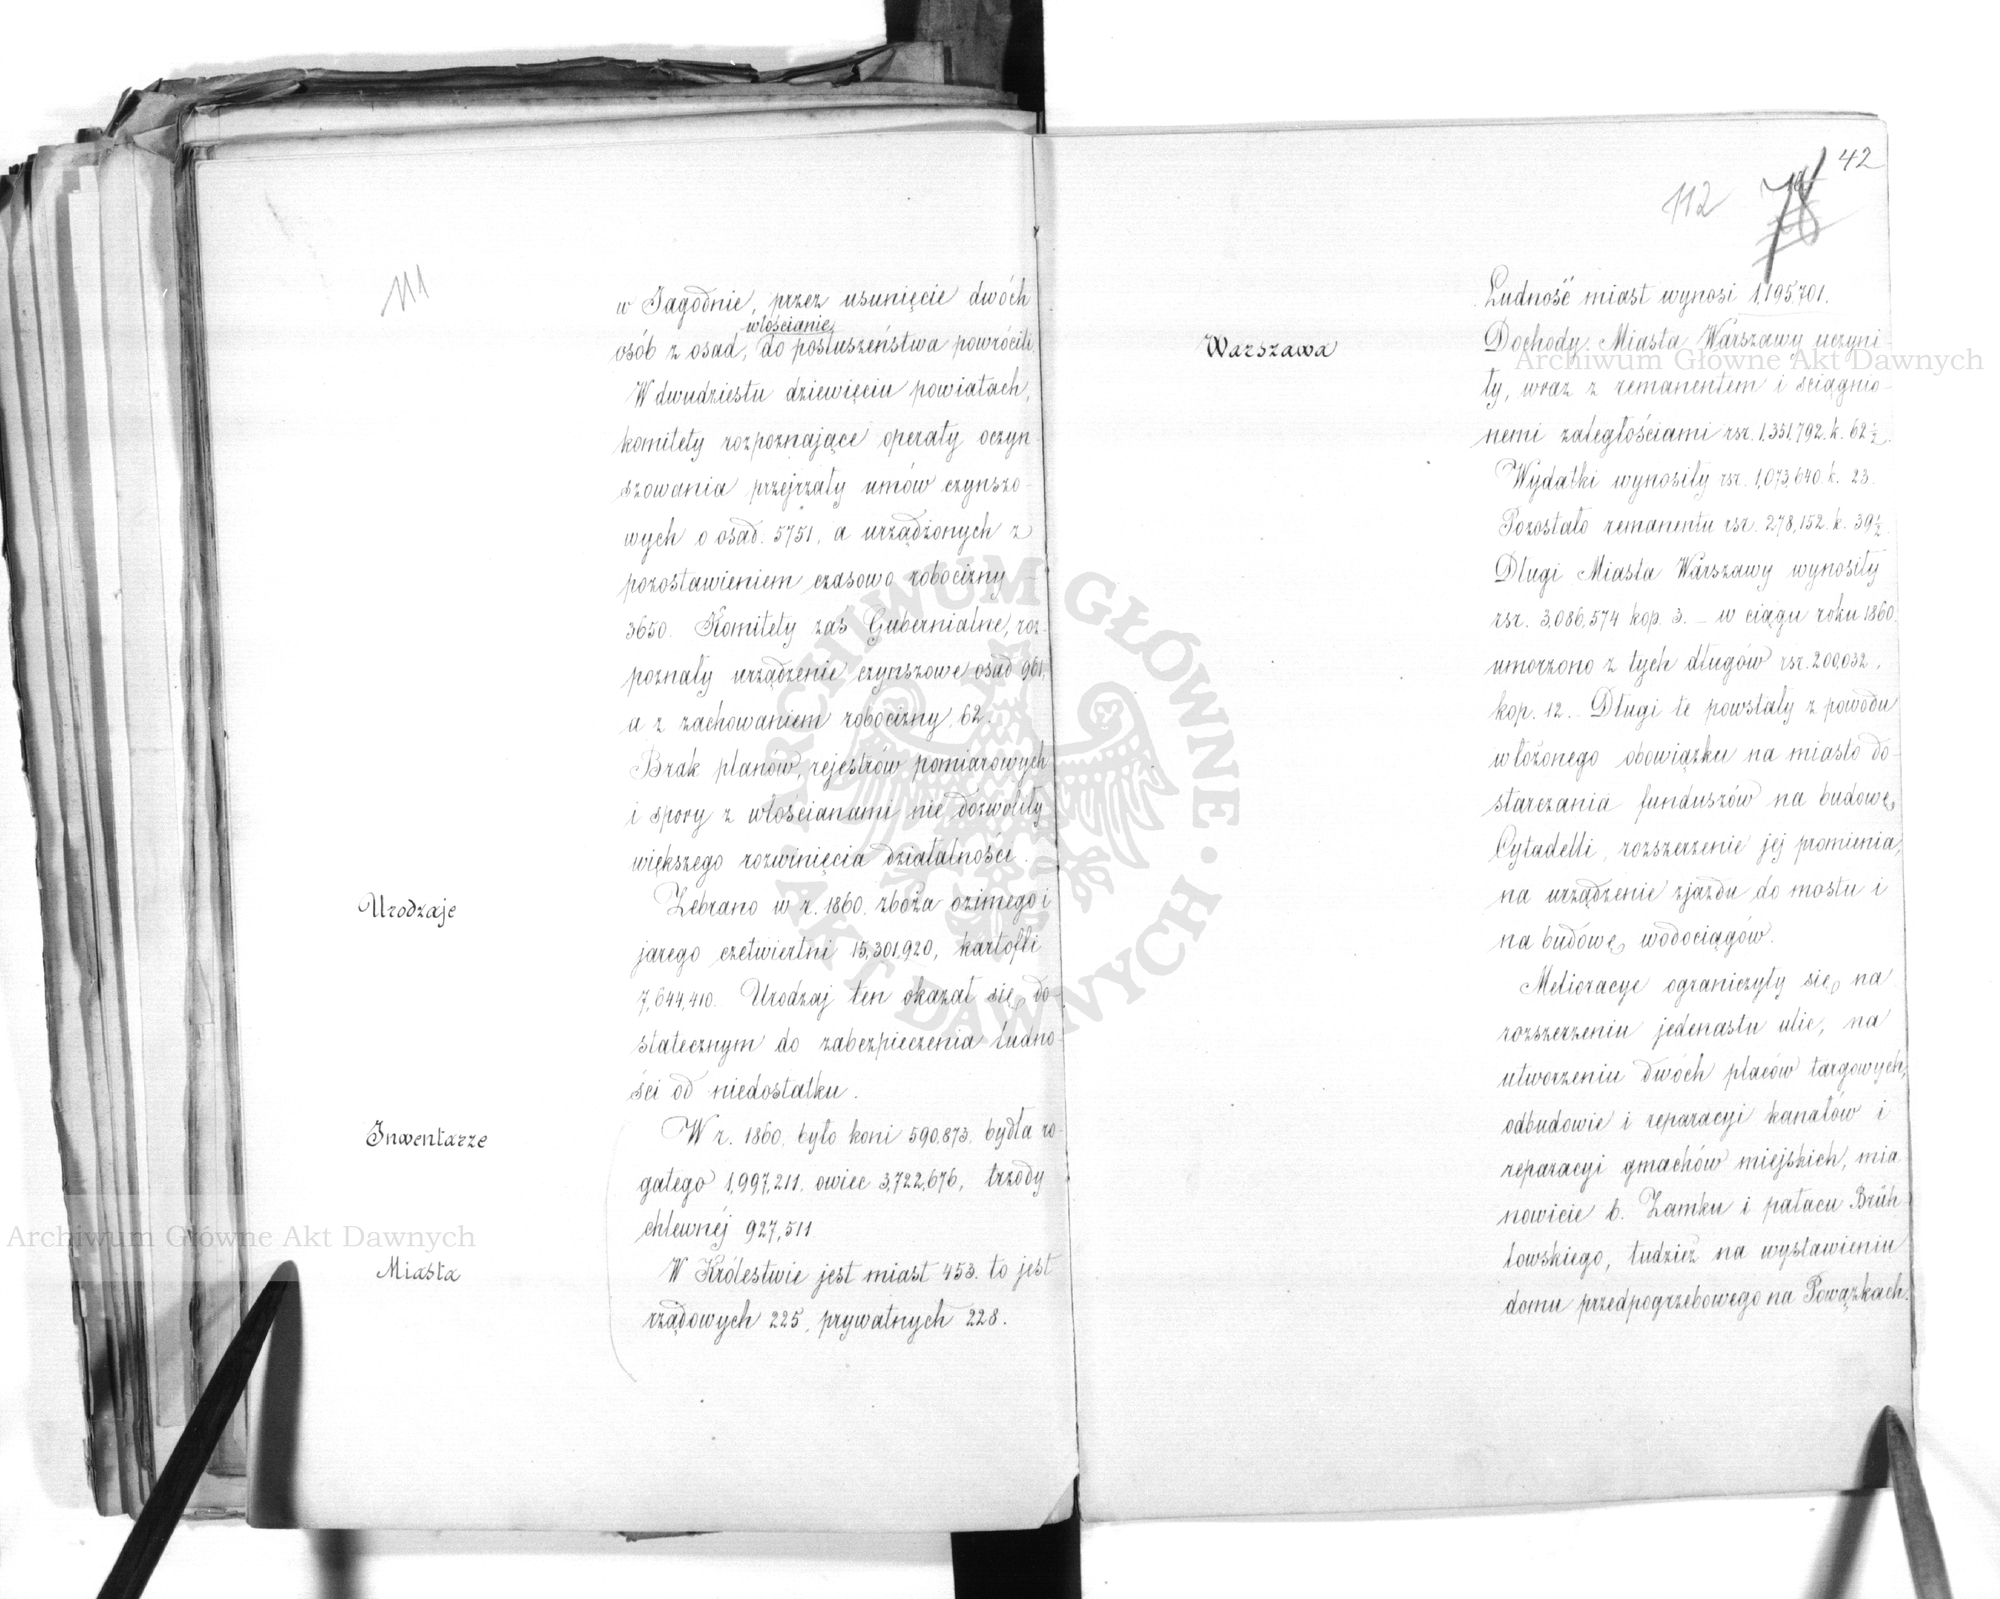 111
w Jagodnie, przez usunięcie dwóch
włościanie
osób z osad, do posłuszeństwa powrócili.
W dwudziestu dziewięciu powiatach,
komitety rozpoznające operaty oczyn-
szowania przejrzały umów czynszo-
wych o osad. 5751, a urządzonych z
pozostawieniem czasowo robocizny -
3650. Komitety zaś Gubernialne, roz-
poznały urządzenie czynszowe osad 961,
a z zachowaniem robocizny, 62.
Brak planów, rejestrów pomiarowych
i spory z włościanami nie dozwoliły
większego rozwinięcia działalności.
Urodzaje
Zebrano w r. 1860. zboża ozimego i
jarego czetwiertni 15,301,920, kartofli
7,644,410. Urodzaj ten okazał się do-
statecznym do zabezpieczenia ludno-
ści od niedostatku.
Inwentarze
W r. 1860, było koni 590,873, bydła ro-
gatego 1,997,211. owiec 3,722,676, trzody
chlewnéj 927,511
Miasta
W Królestwie jest miast 453. to jest
rządowych 225, prywatnych 228.
42
112 78
Ludność miast wynosi 1,195,701.
Warszawa
Dochody Miasta Warszawy uczyni-
ły, wraz z remanentem i ściągnio-
nemi zaległościami rsr. 1,351,792. k. 62½.
Wydatki wynosiły rsr. 1,073,640. k. 23.
Pozostało remanentu rsr. 278,152. k. 39½.
Długi Miasta Warszawy wynosiły
rsr. 3,086,574 kop. 3. – w ciągu roku 1860.
umorzono z tych długów rsr. 200,032,
kop. 12. Długi te powstały z powodu
włożonego obowiązku na miasto do-
starczania funduszów na budowę
Cytadelli, rozszerzenie jéj promienia,
na urządzenie zjazdu do mostu i
na budowę wodociągów.
Melioracye ograniczyły się na
rozszerzeniu jedenastu ulic, na
utworzeniu dwóch placów targowych,
odbudowie i reparacyi kanałów i
reparacyi gmachów miejskich, mia
nowicie b. Zamku i pałacu Brüh-
lowskiego, tudzież na wystawieniu
domu przedpogrzebowego na Powązkach.
Archiwum Główne Akt Dawnych
Archiwum Główne Akt Dawnych
ARCHIWUM GŁÓWNE · AKT DAWNYCH ·